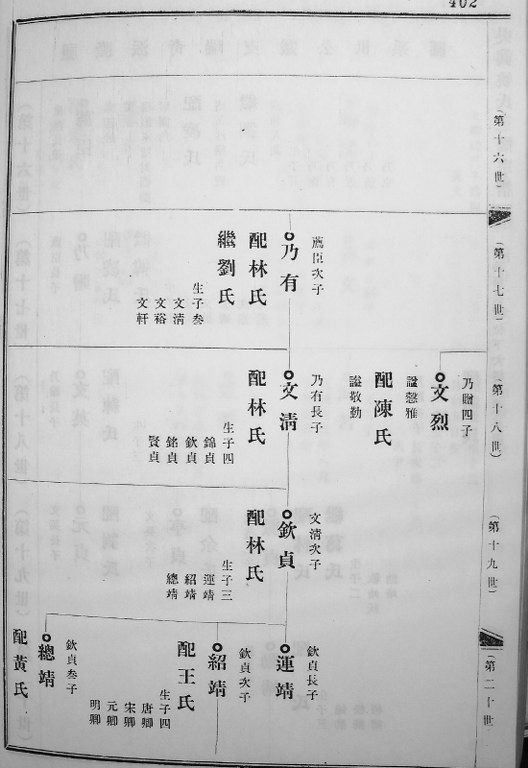 402
（第十六世）
（第十七世）
薦臣次子
乃有
配林氏
繼劉氏
生子叁
文清
文裕
文軒
（第十八世）
乃贈四子
文烈
諡慤雅
配陳氏
諡敬勤
乃有長子
文清
配林氏
生子四
錦貞
欽貞
銘貞
賢貞
（第十九世）
文清次子
欽貞
配林氏
生子三
運靖
紹靖
總靖
（第二十世）
欽貞長子
運靖
欽貞次子
紹靖
配王氏
生子四
唐卿
宋卿
元卿
明卿
欽貞叁子
總靖
配黃氏